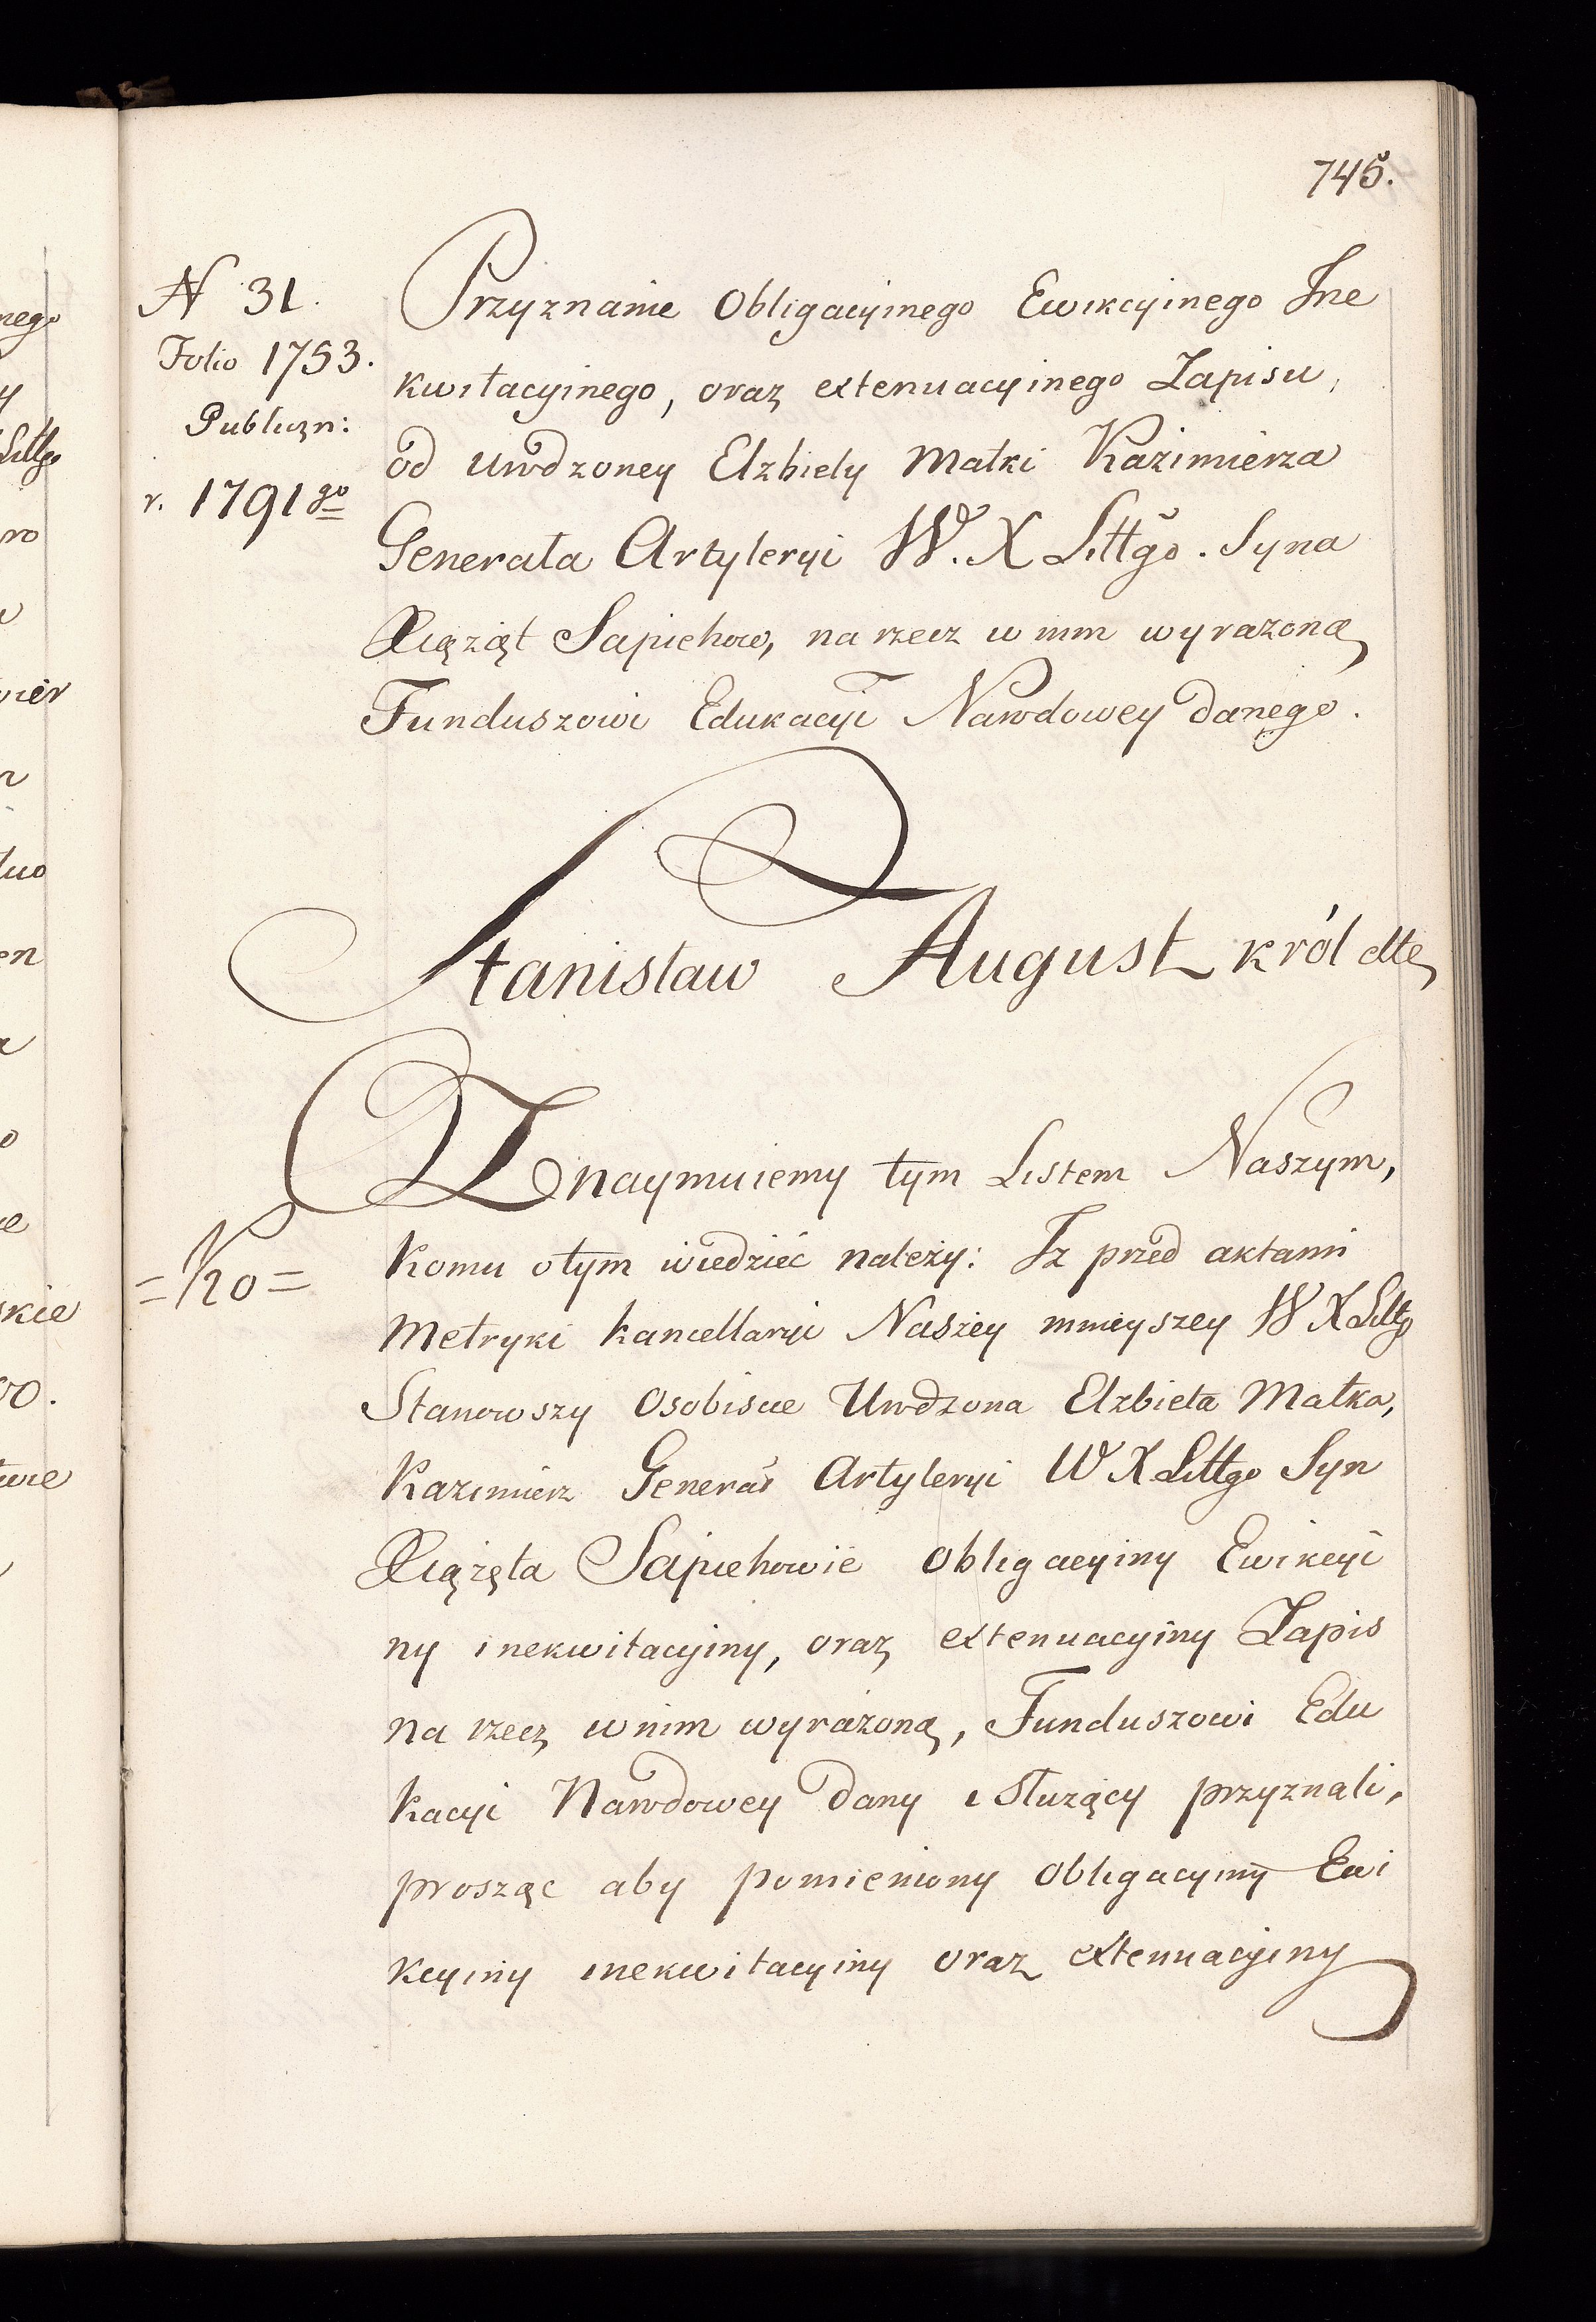 745.
N 31.
Folio 1753.
Publiczn:
r. 1791 go
Przyznanie Obligacyinego Ewikcyinego Ine
kwitacyinego, oraz extenuacyinego Zapisu,
od urodzoney Elzbiety Matki Kazimierza
Generała Artyleryi W. X Littgo. Syna
Xiążąt Sapiehow, na rzecz w nim wyrazoną
Funduszowi Edukacyi Narodowey danego.
Stanisław August król etc
Oznaymuiemy tym Listem Naszym,
= Ko =
Komu otym wiedzieć należy: Iz przed aktami
Metryki kancellaryi Naszey mnieyszey W X Littgo
Stanowszy Osobiscie Urodzona Elzbieta Matka,
Kazimierz Generał Artyleryi W X Littgo Syn
Xiążęta Sapiehowie obligacyiny Ewikcyi
ny inekwitacyiny, oraz extenuacyiny Zapis
na rzecz w nim wyrażoną, Funduszowi Edu
kacyi Narodowey dany i Służący przyznali,
prosząc aby pomieniony Obligacyiny Ewi
kcyiny inekwitacyiny oraz extenuacyiny
nego
y
Littgo
ro
n
en
a
o
skie